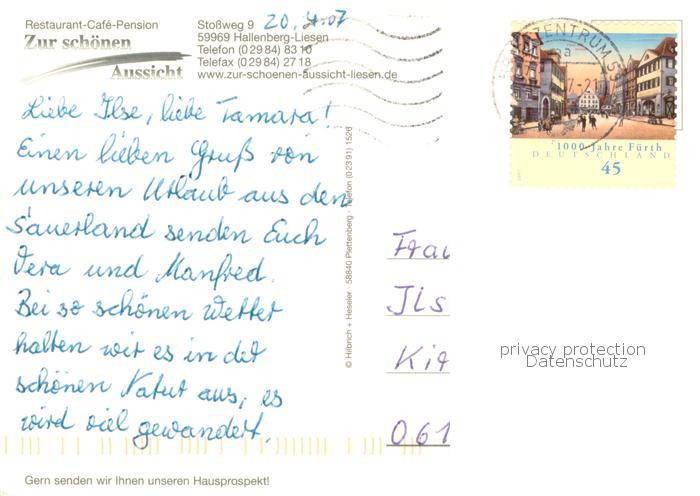 Restaurant-Café-Pension
Zur schönen
Aussicht
Stoßweg 9
59969 Hallenberg-Liesen
Telefon (0 29 84) 83 10
Telefax (0 29 84) 27 18
www.zur-schoenen-aussicht-liesen.de
20.4.07
Liebe Ilse, liebe Tamara!
Einen lieben Gruß von
unseren Urlaub aus den
Sauerland senden Euch
Vera und Manfred.
Bei so schönen Wetter
halten wir es in der
schönen Natur aus, es
wird viel gewandert.
Gern senden wir Ihnen unseren Hausprospekt!
© Hilbrich + Heseler · 58840 Plettenberg · Telefon (0 23 91) 1526
BRIEFZENTRUM
1000 Jahre Fürth
DEUTSCHLAND
45
Frau
Ils
Kir
061
privacy protection
Datenschutz